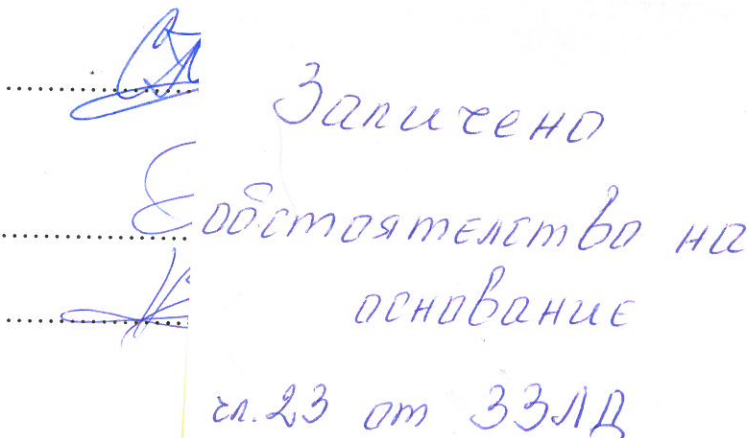 Заличено
обстоятелство на
основание
чл.23 от ЗЗЛД